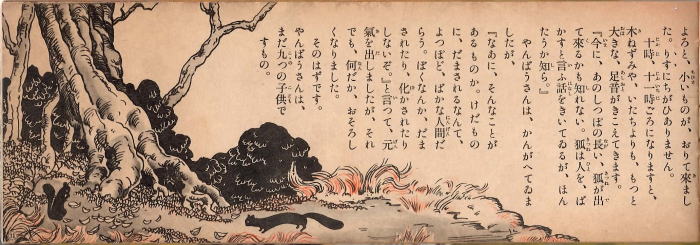 よろと、小いものが、おりて來まし
た。りすにちがひありません。
十時、十一時ごろになりますと、
木ねずみや、いたちよりも、もつと
大きな、足音がきこえてきます。
『今に、あのしつぽの長い、狐が出
て來るかも知れない。狐は人を、ば
かすと言ふ話をきいてゐるが、ほん
たうか知ら。』
やんばうさんは、かんがへてゐま
したが、
『なあに、そんなことが
あるものか。けだもの
に、だまされるなんて、
よつぽど、ばかな人間だ
らう。ぼくなんか、だま
されたり、化かされたり
しないぞ。』と言つて、元
氣を出しましたが、それ
でも、何だか、おそろし
くなりました。
そのはずです。
やんばうさんは、
まだ九つの子供で
すもの。